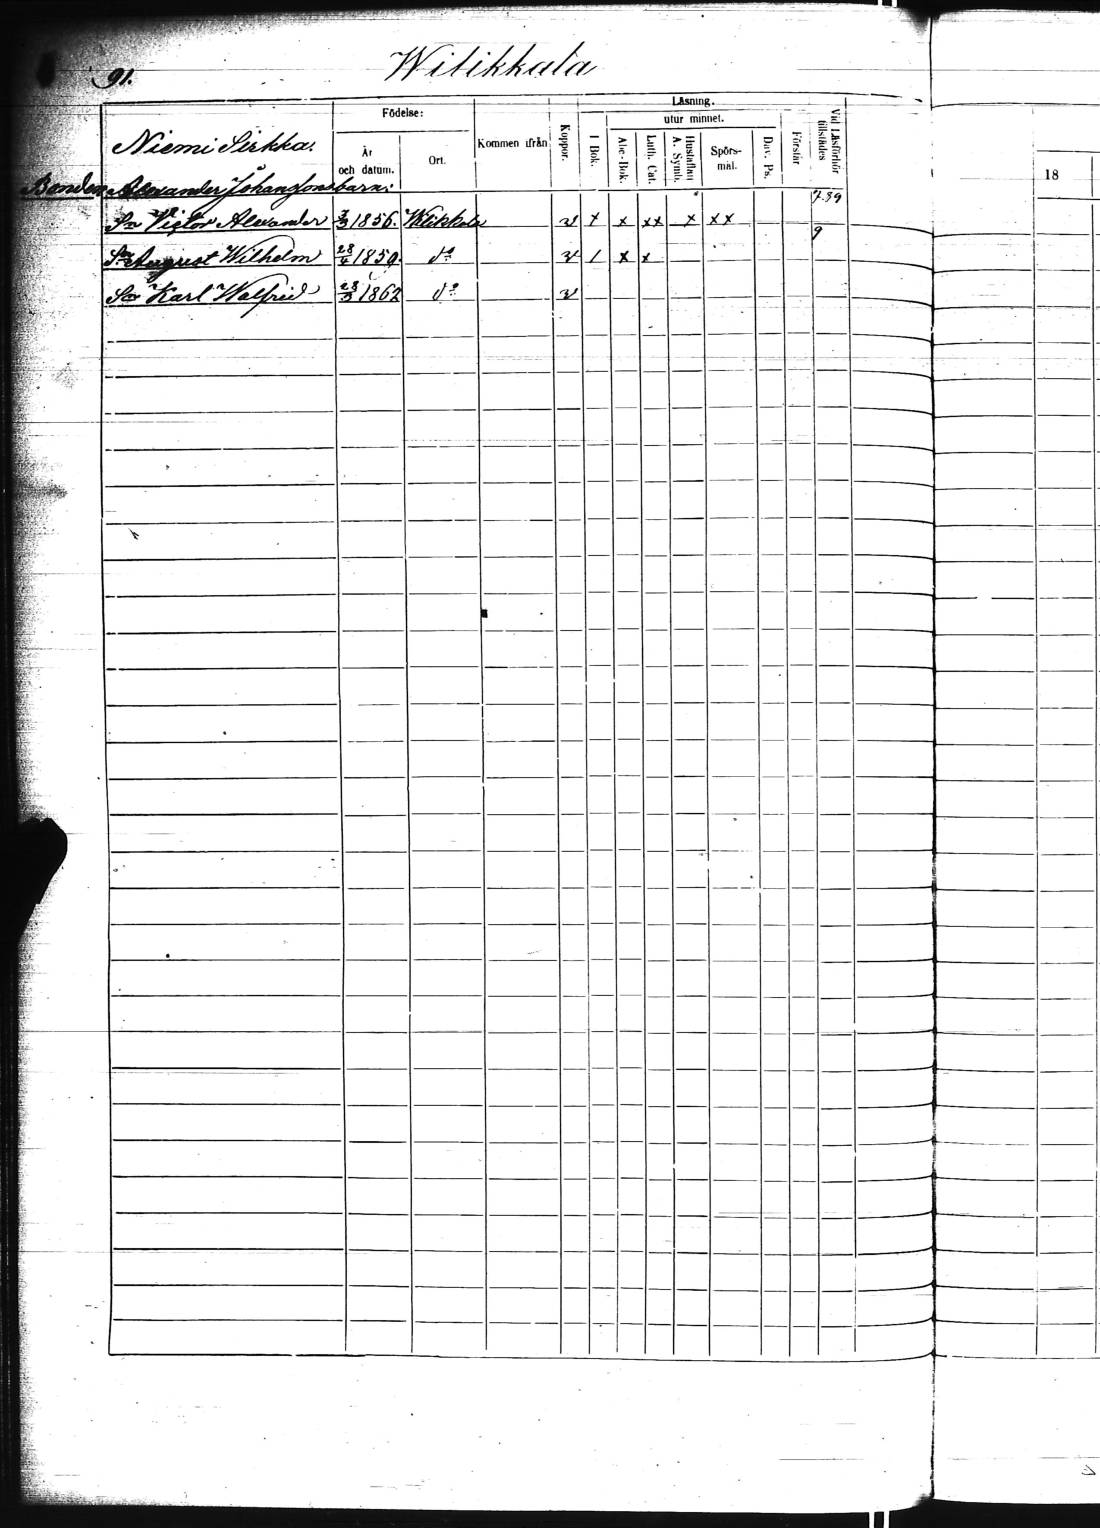 91.
Witikkala
Niemi Sirkka.
Födelse:
År och datum.
Ort.
Kommen ifrån
Koppor.
Läsning.
I Bok.
utur minnet.
Abc-Bok.
Luth. Cat.
Hustaflan A. Symb.
Spörs-mål.
Dav. Ps.
Förstår
Vid Läsförhör tillstädes
18
Bonden Alexander Johanssons barn:
7. 89
Sn Victor Alexander 1856. Witikkala v x x xx x xx
9
Sn August Wilhelm 28/4 1859 do v / x x
Sn Karl Walfrid 1862 do v